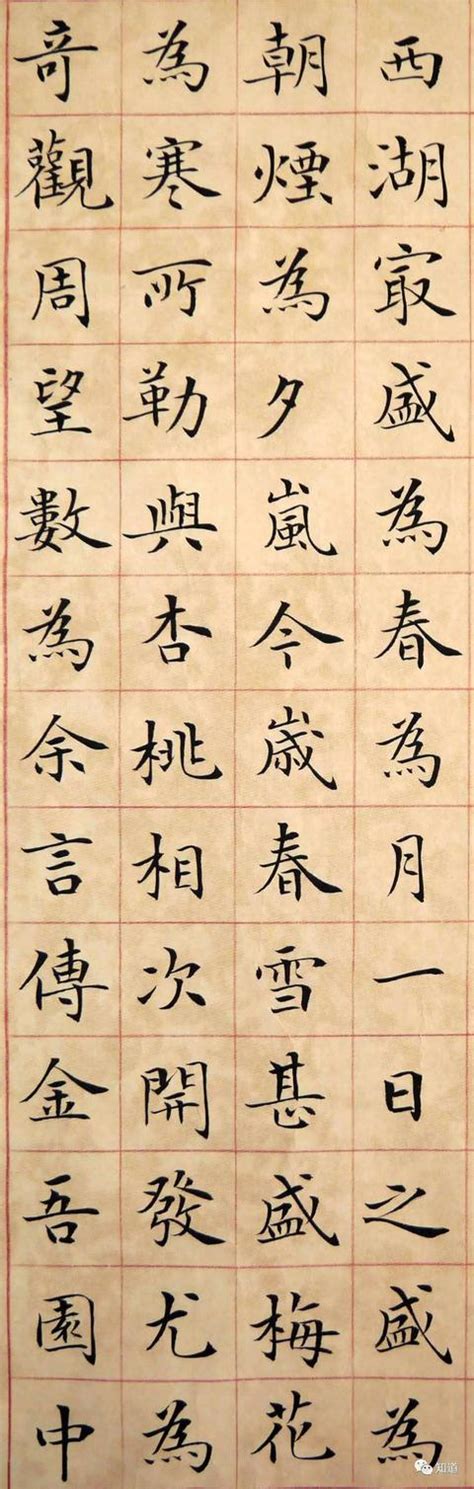 西湖㝡盛為春為月一日之盛為
朝煙為夕嵐今歲春雪甚盛梅花
為寒所勒與杏桃相次開發尤為
奇觀周望數為余言傳金吾園中
知道